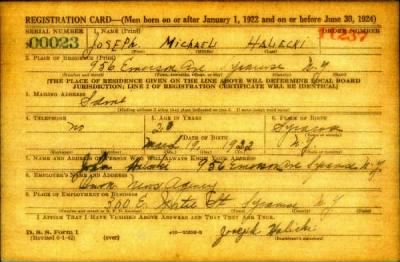 REGISTRATION CARD—(Men born on or after January 1, 1922 and on or before June 30, 1924)
SERIAL NUMBER 1. NAME (Print) ORDER NUMBER
00023 JOSEPH MICHAEL HALICKI 11237
2. PLACE OF RESIDENCE (Print)
936 Emerson Ave Syracuse N.Y
[THE PLACE OF RESIDENCE GIVEN ON THE LINE ABOVE WILL DETERMINE LOCAL BOARD
JURISDICTION; LINE 2 OF REGISTRATION CERTIFICATE WILL BE IDENTICAL]
3. MAILING ADDRESS
Same
4. TELEPHONE 5. AGE IN YEARS 6. PLACE OF BIRTH
no 20 Syracuse
DATE OF BIRTH
March 19, 1922 N.Y.
7. NAME AND ADDRESS OF PERSON WHO WILL ALWAYS KNOW YOUR ADDRESS
John Halicki 936 Emerson Ave Syracuse N.Y.
8. EMPLOYER'S NAME AND ADDRESS
News Agency
9. PLACE OF EMPLOYMENT OR BUSINESS
300 E. St Syracuse N.Y.
I AFFIRM THAT I HAVE VERIFIED ABOVE ANSWERS AND THAT THEY ARE TRUE.
D. S. S. Form 1
(Revised 6-1-42) (over) Joseph Halicki